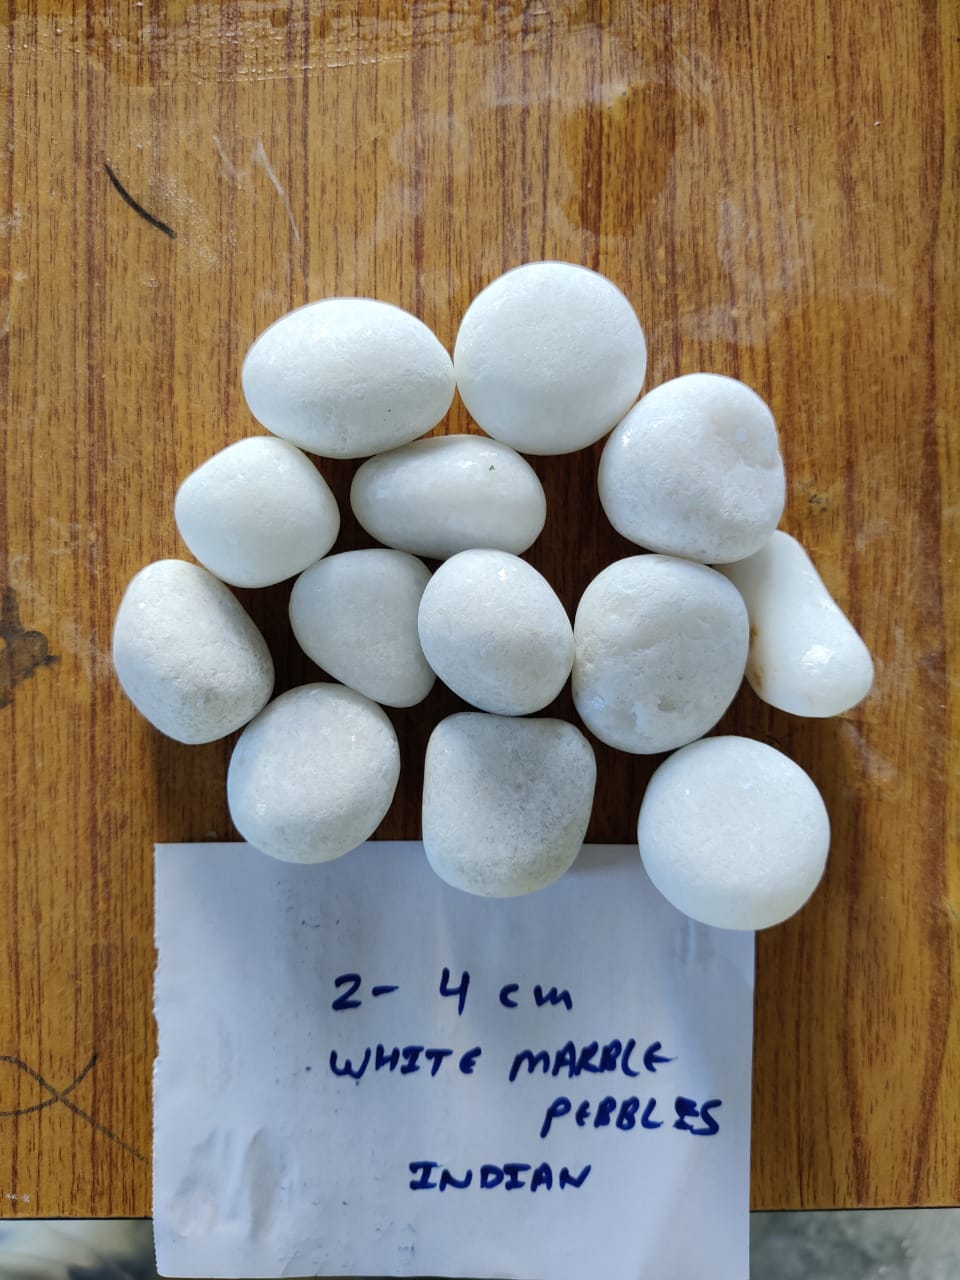 2- 4 cm
WHITE MARBLE
PEBBLES
INDIAN